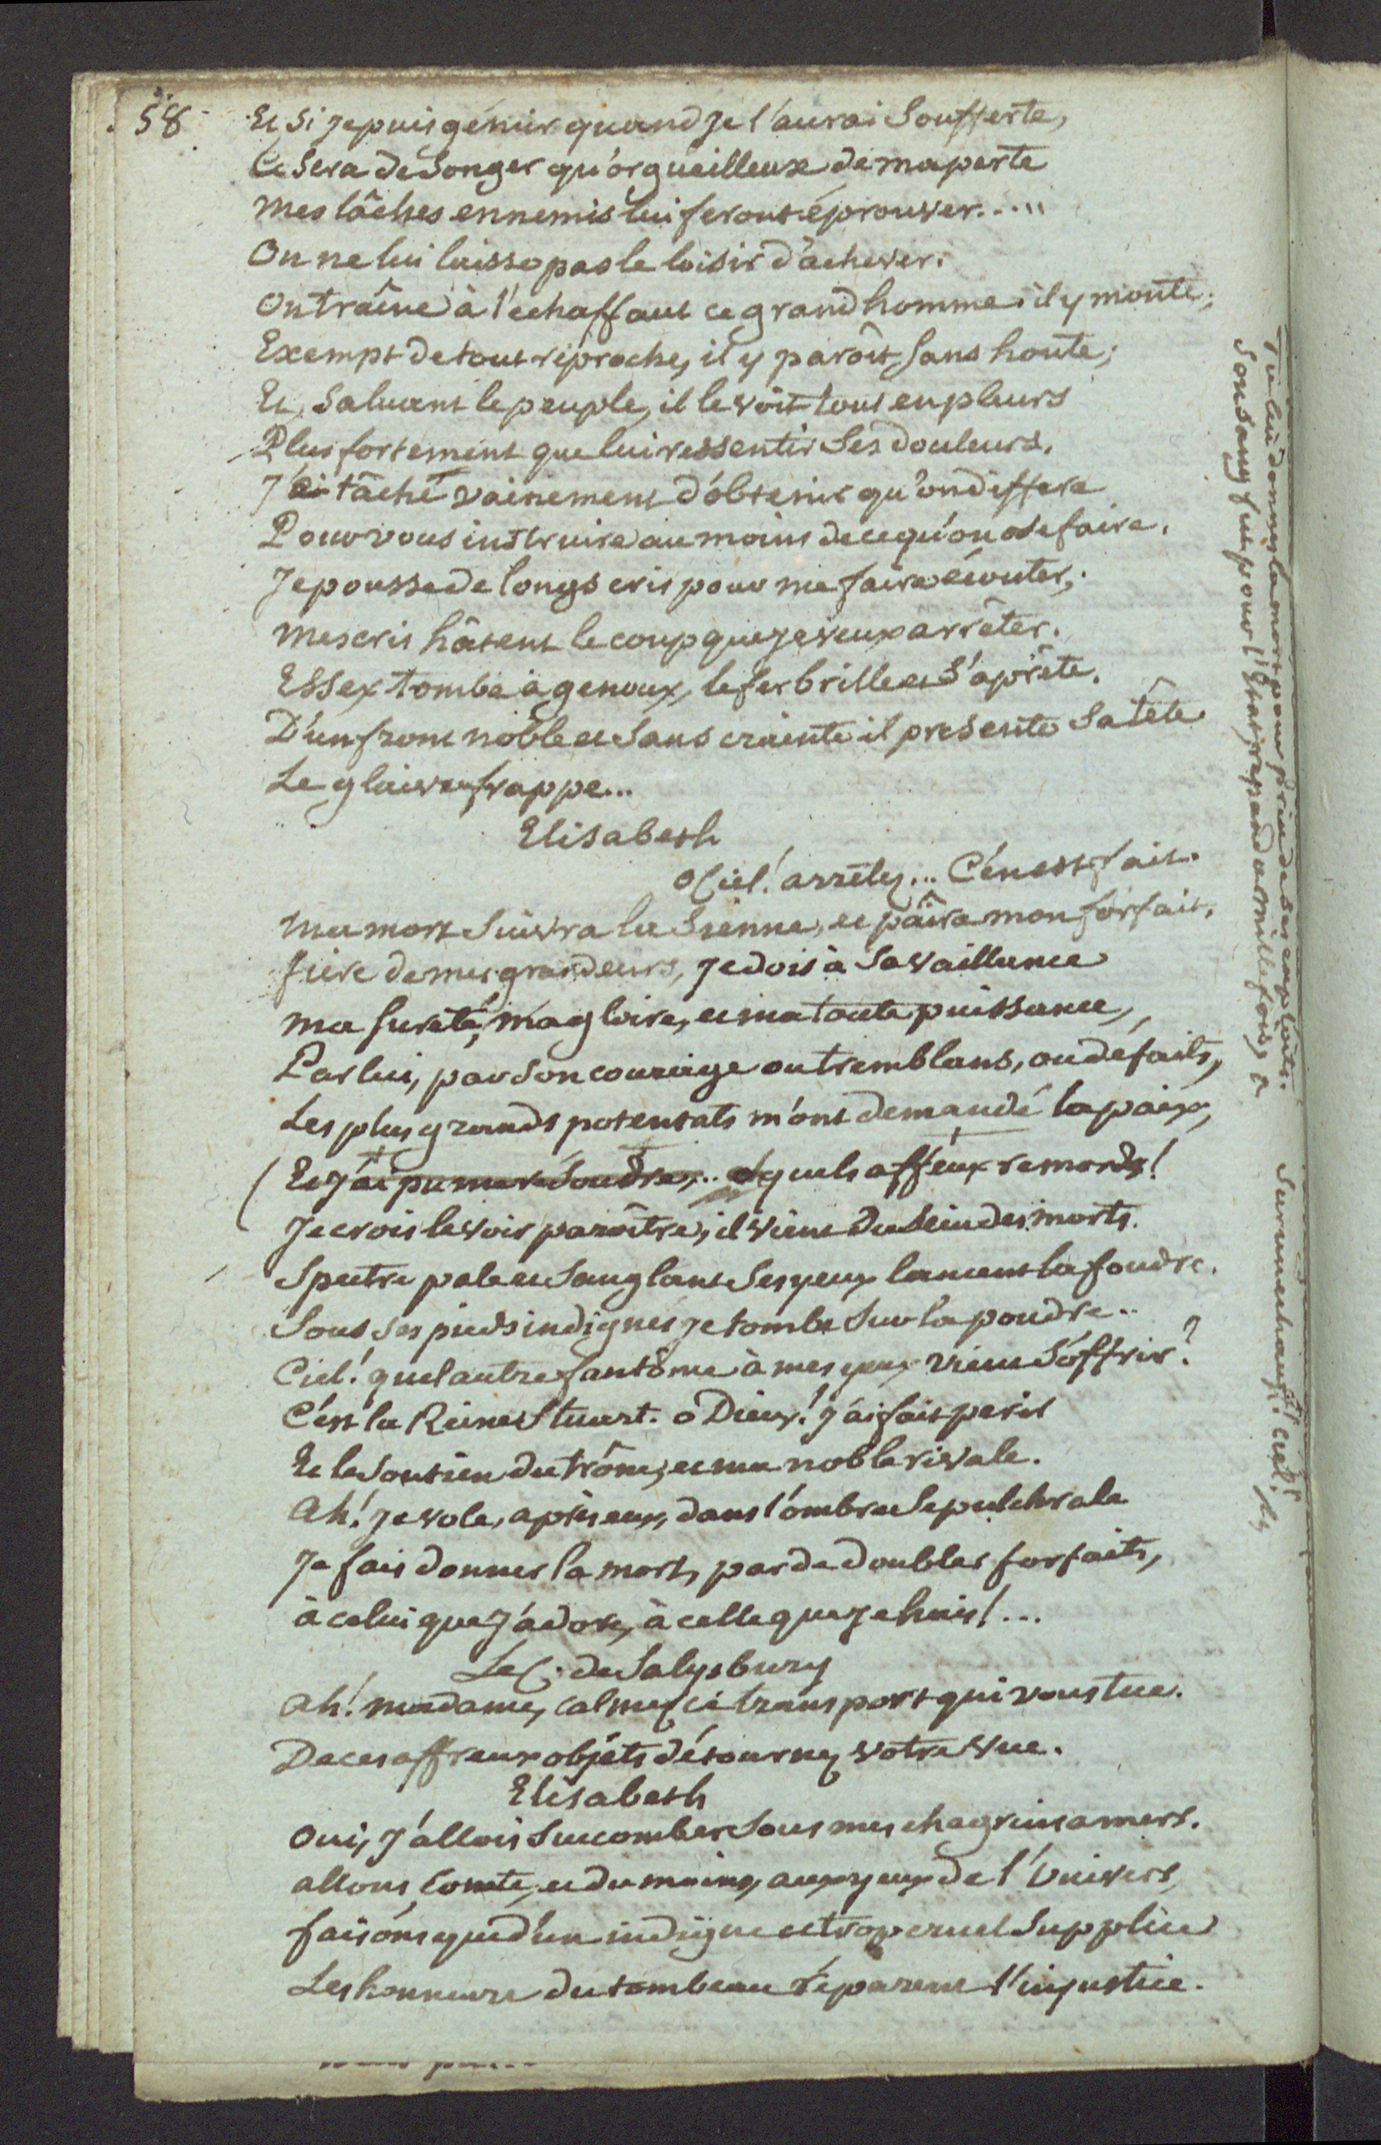 58
Et Si je puis gémir quand Je l'aurai Soufferte,
Ce Sera de Songer qu'orgueilleux de ma perte
mes lâches ennemis lui feront éprouver.....
On ne lui laisse pas le loisir d'achever.
On traîne à l'echaffaut ce grand homme : il y monte;
Exempt de tout réproche, il y parôit Sans honte;
Et, Saluant le peuple, il le voit tout en pleurs
Plus fortement que lui ressentir Ses douleurs.
J'ai tâché vainement d'obtenir qu'on differe
Pour vous instruire au moins de ce qu'on ose faire.
Je pousse de longs cris pour me faire écouter;
mes cris hâtent le coup que je veux arrêter.
Essex tombe à genoux, le fer brille et S'aprête.
D'un front noble et Sans crainte il présente Sa tête
Le glaive frappe...
Elisabeth
O Ciel! arrêtez... C'en est fait.
ma mort Suivra la Sienne, et paîra mon forfait,
fiere de mes grandeurs, Je dois à Sa vaillance
ma Sureté, ma gloire, et ma toute puissance,
Par lui, par Son courage ou tremblans, ou défaits,
Les plus grands potentats m'ont demandé la paix,
Et J'ai pu m'y résoudre... quels affreux remords!
Je crois le voir parôitre, il vient du Sein des morts.
Spectre pale et Sanglant Ses yeux lancent la foudre.
Sous Ses pieds indignés je tombe Sur la poudre..
Ciel! quel autre fantôme à mes yeux vient S'offrir?
C'est la Reine Stuart. ô Dieux! J'ai fait perir
Et le Soutien du trône, et ma noble rivale.
Ah! Je vole, après eux, dans l'ombre Sepulchrale
Je fais donner la mort, par de doubles forfaits,
à celui que J'adore, à celle que je hais!...
Le C. de Salysbury
Ah! madame, calmez ce transport qui vous tue.
De ces affreux objéts détournez votre vue.
Elisabeth
Oui, J'allois Succomber Sous mes chagrins amers.
allons, Comte, et du moins, aux yeux de l'Univers,
faisons que d'un indigne et trop cruel Supplice
Les honneurs du tombeau réparent l'injustice.
Tu lui donnes la mort pour prix de Ses exploits.
Son Sang fut pour l'Etat répandu mille fois,